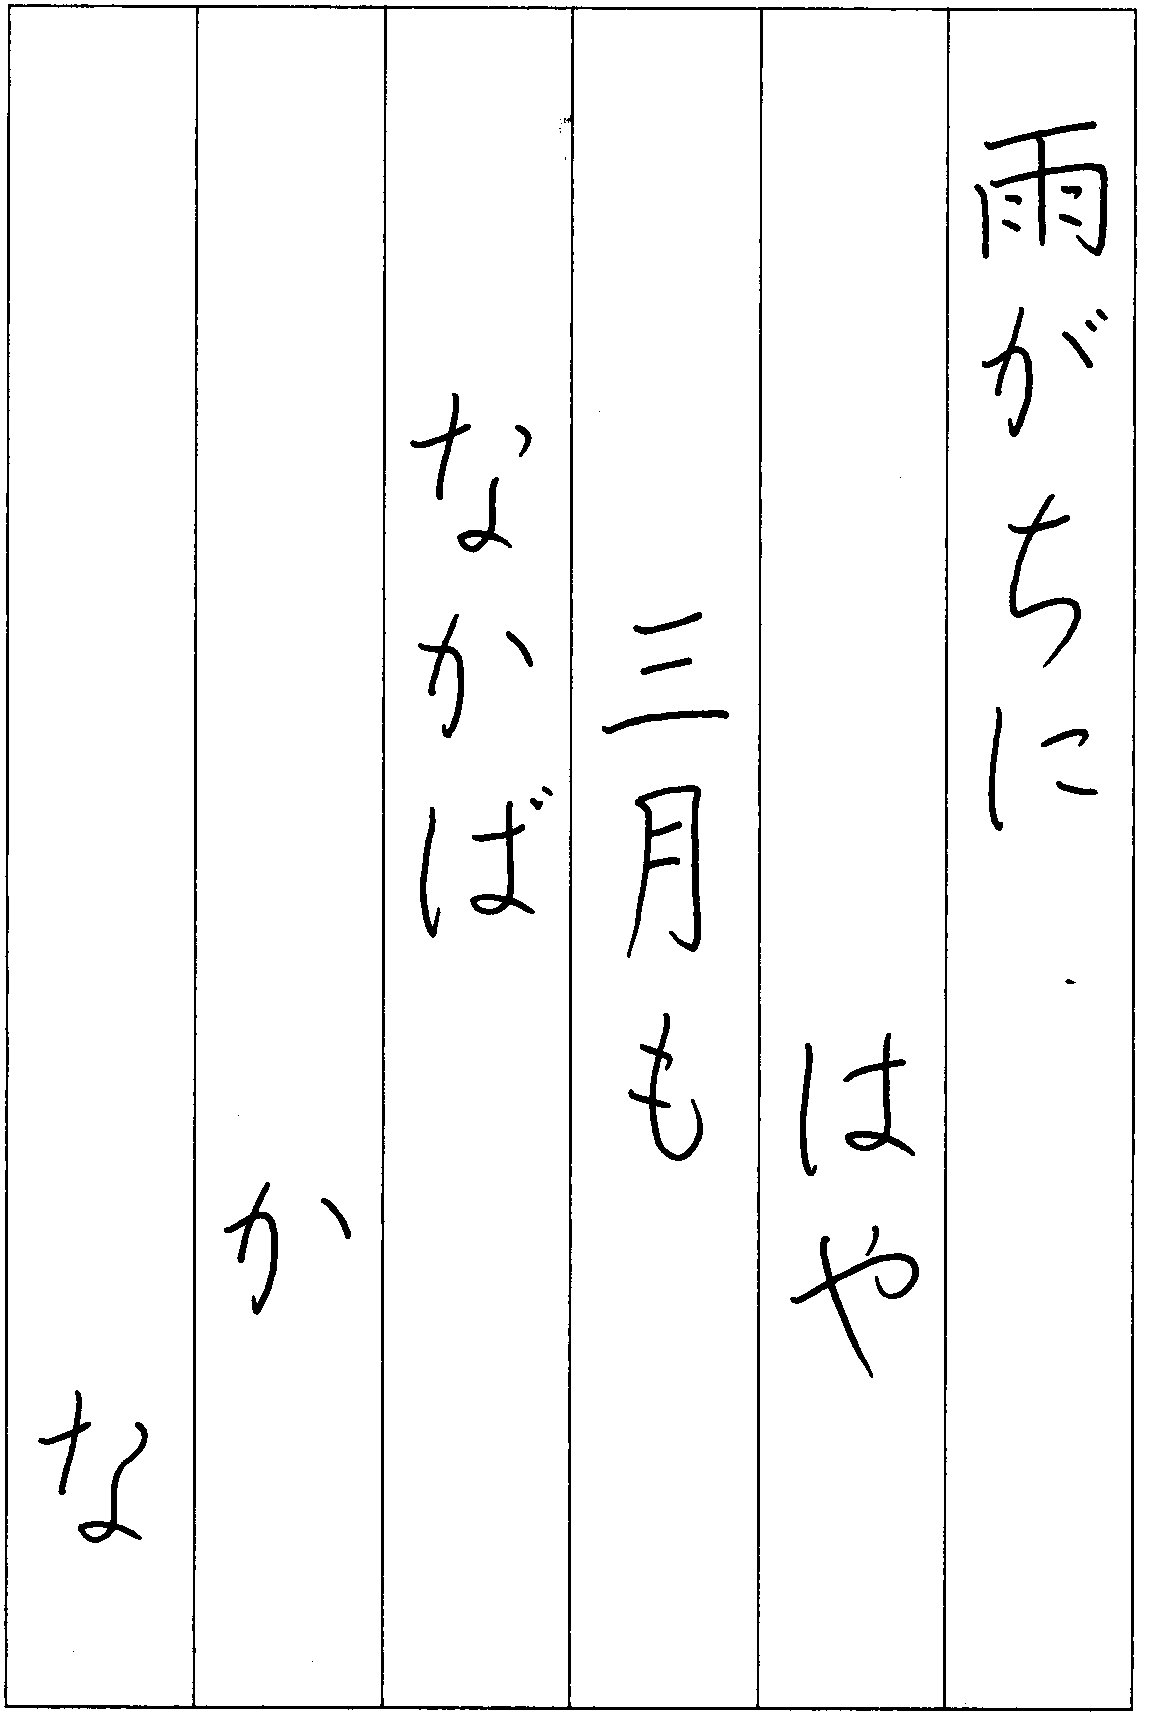 雨がちに
はや
三月も
なかば
か
な